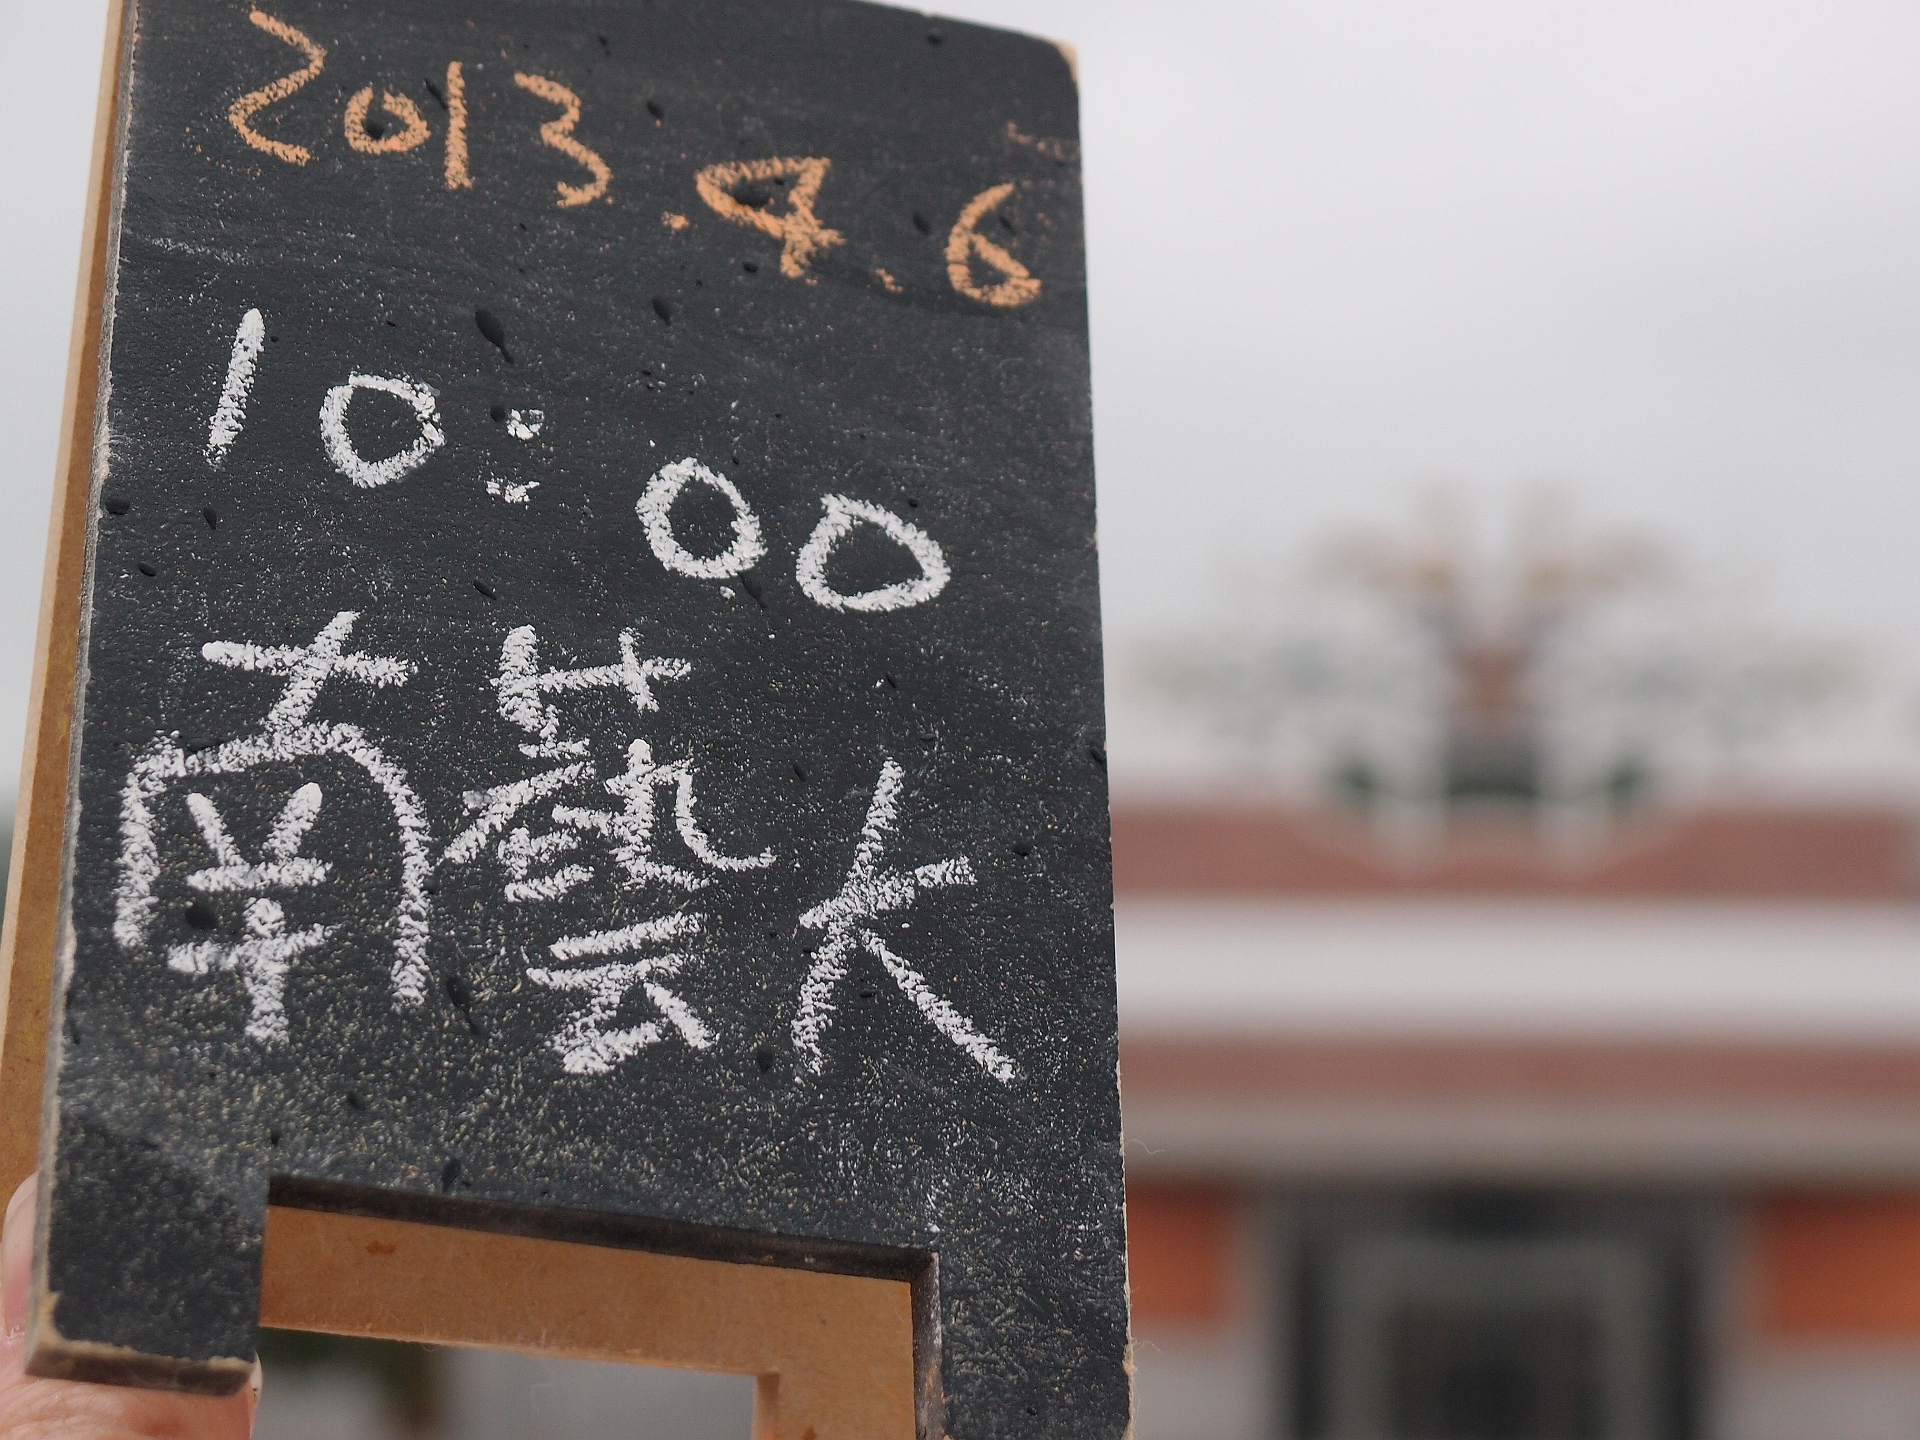 2013.4.6
10:00
南藝大